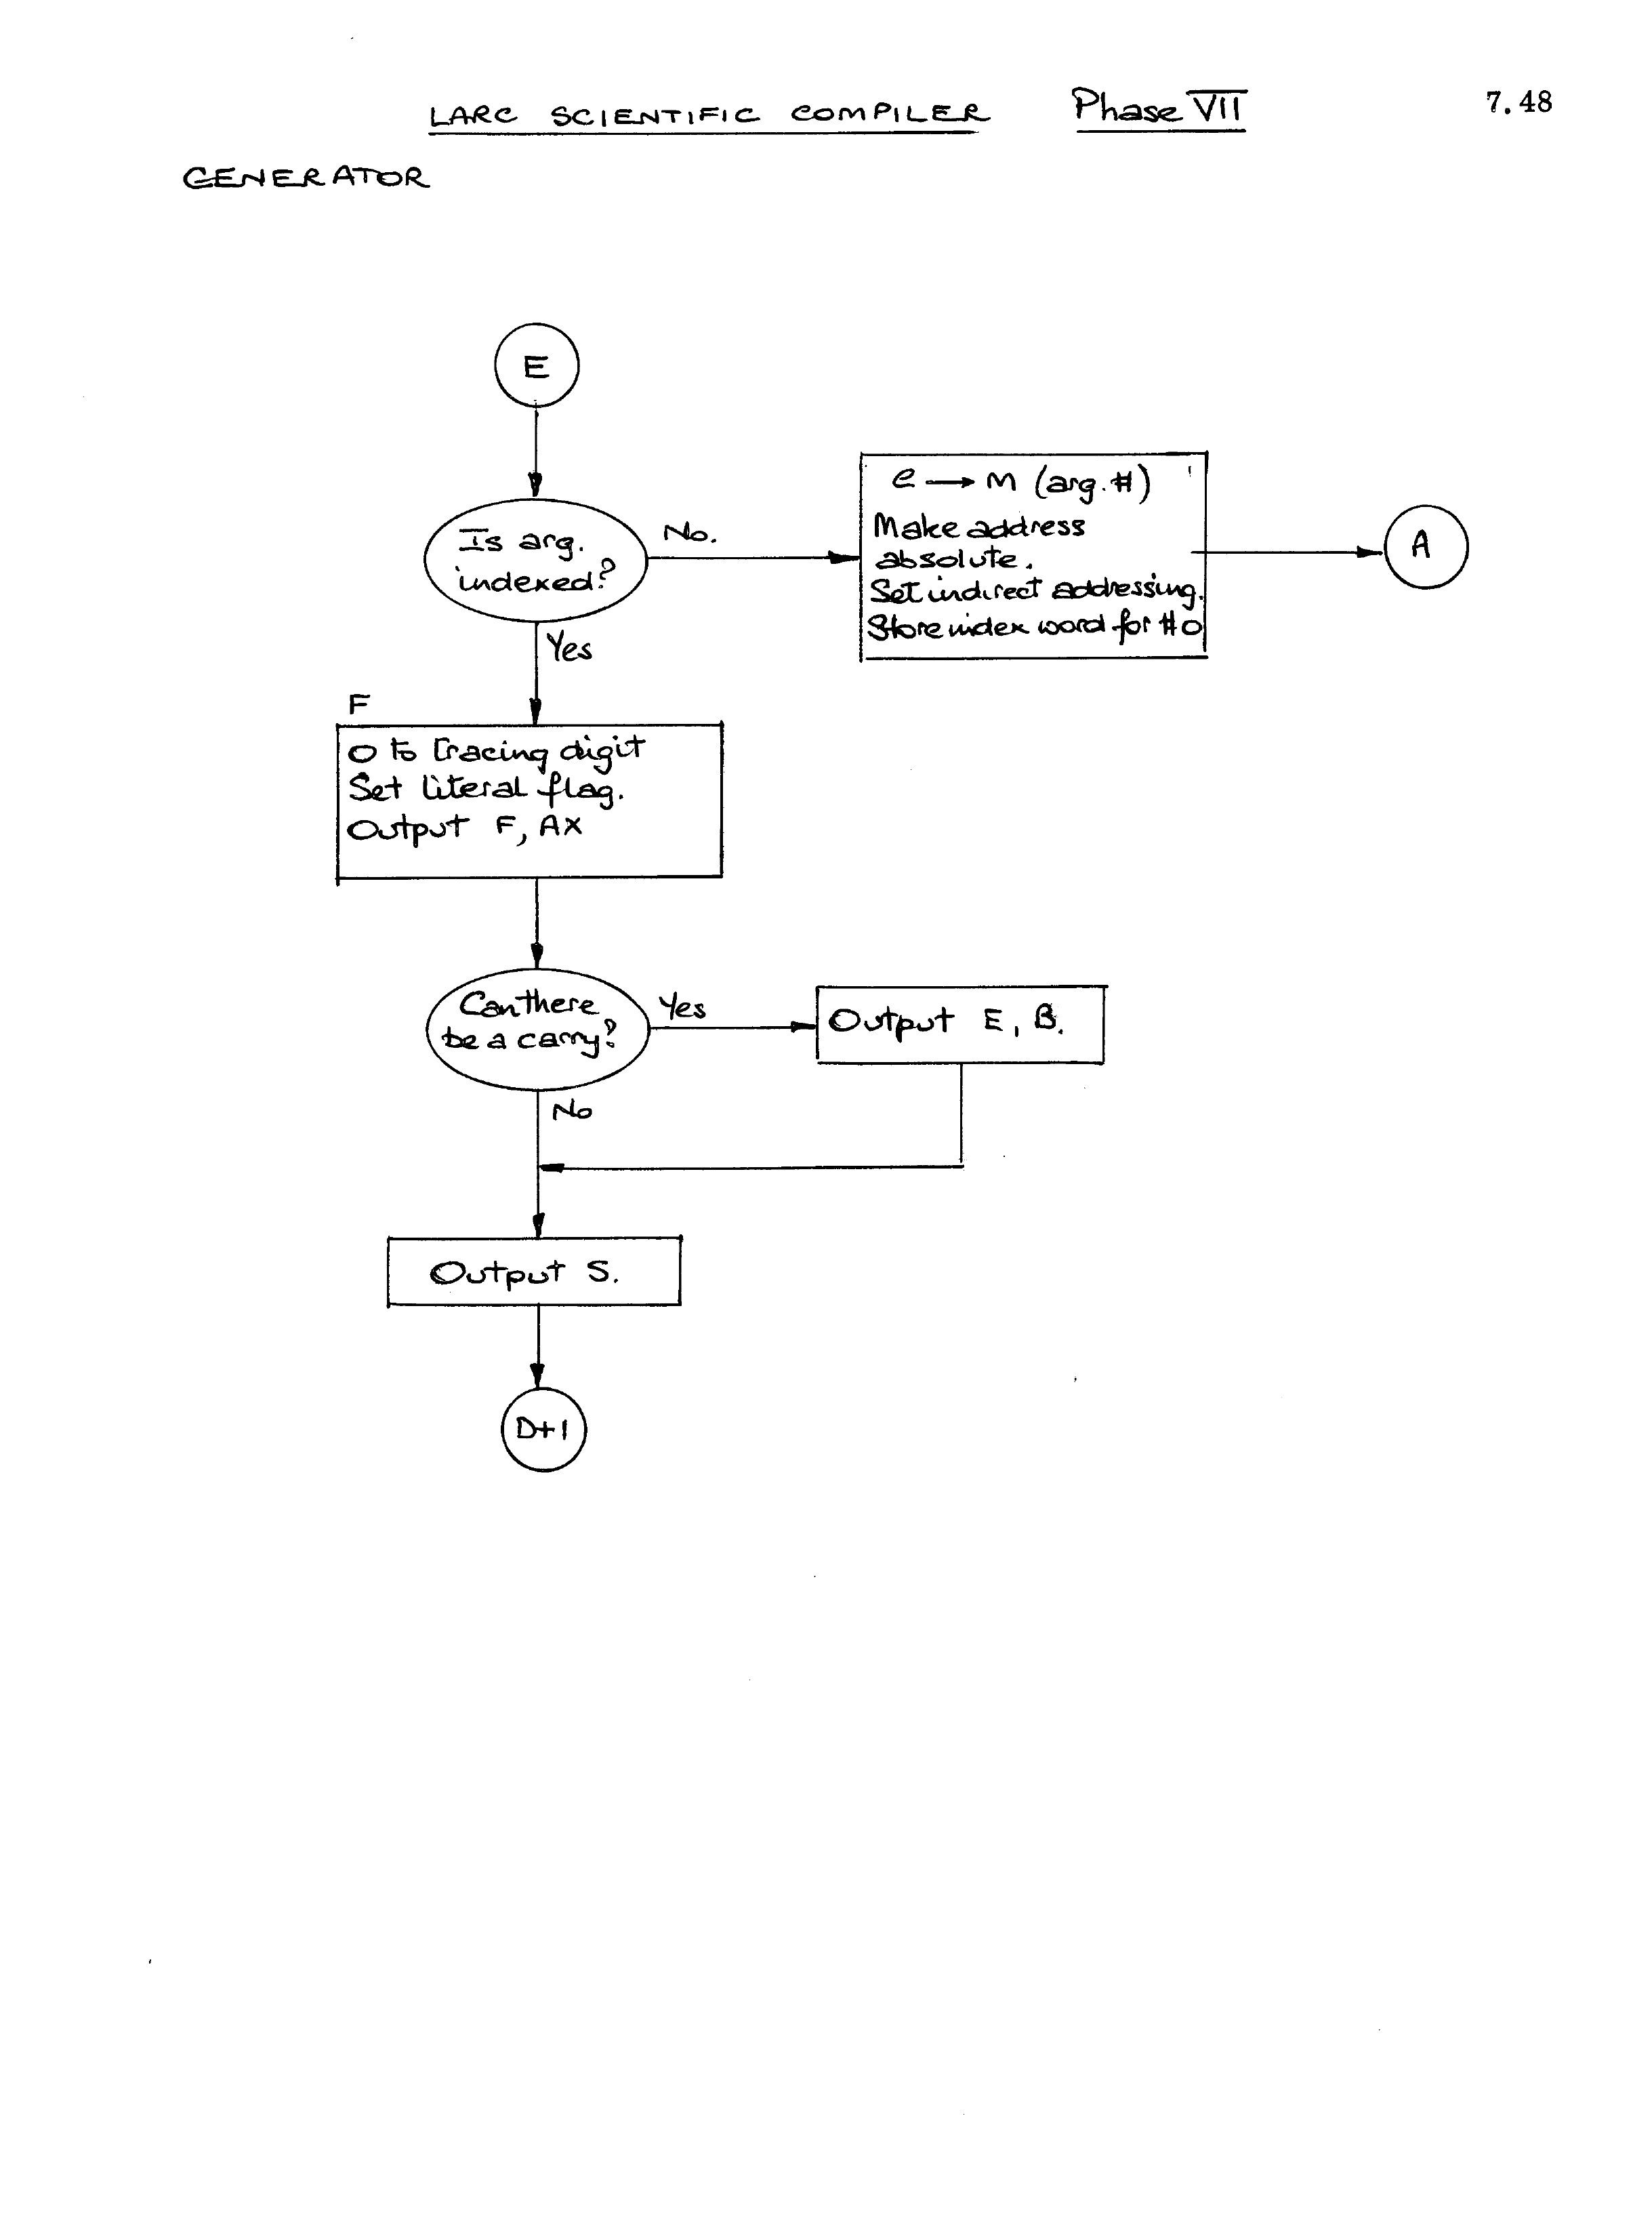 LARC SCIENTIFIC COMPILER Phase VII 7.48
GENERATOR
E
Is arg.
indexed?
No.
e → m (arg. #)
Make address
absolute.
Set indirect addressing.
Store index word for #0
A
Yes
F
0 to tracing digit
Set literal flag.
Output F, AX
Can there
be a carry?
Yes
Output E, B.
No
Output S.
D+1